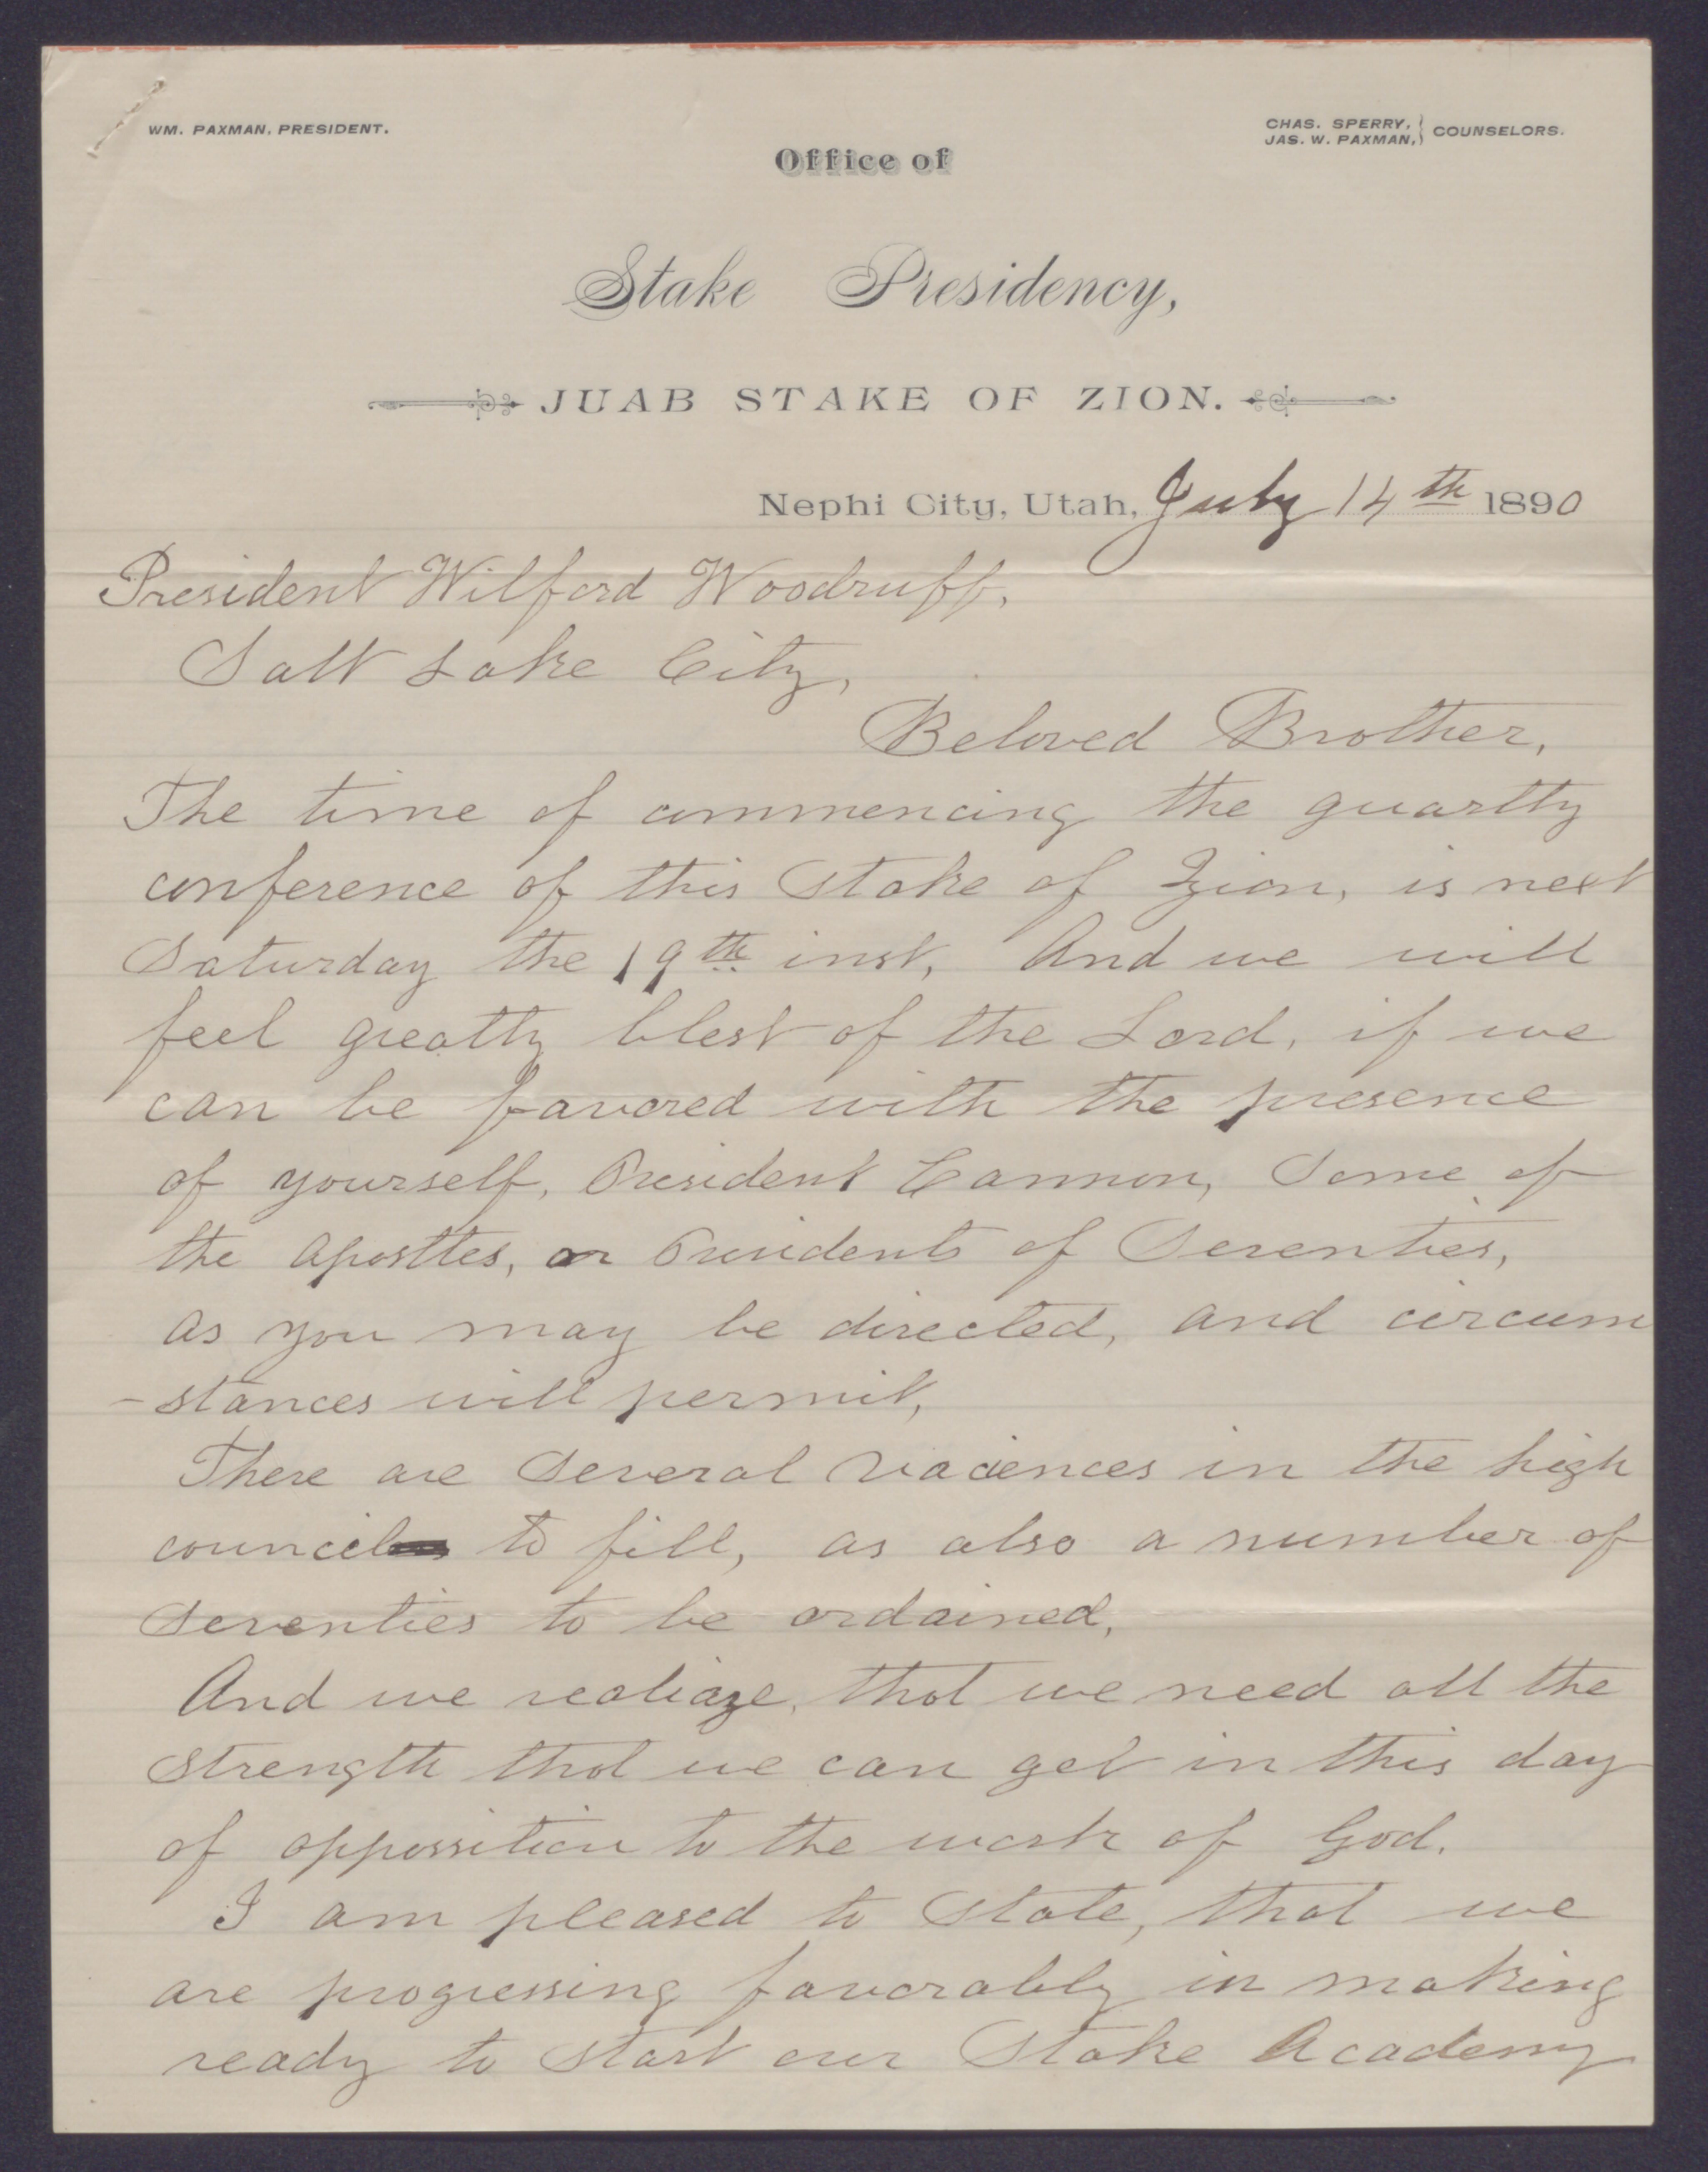 WM. PAXMAN, PRESIDENT.
CHAS. SPERRY, JAS. W. PAXMAN, } COUNSELORS.
Office of
Stake Presidency,
JUAB STAKE OF ZION.
Nephi City, Utah, July 14th 1890
President Wilford Woodruff,
Salt Lake City,
Beloved Brother,
The time of commencing the quartly
conference of this Stake of Zion, is next
Saturday the 19th inst, And we will
feel greatly blest of the Lord, if we
can be favored with the presence
of yourself, President Cannon, Some of
the Apostles, or Presidents of Seventies,
as you may be directed, and circum
-stances will permit,
There are Several Vaciences in the high
council to fill, as also a number of
Seventies to be ordained,
And we realiaze, that we need all the
Strength that we can get in this day
of oppossition to the work of God.
I am pleased to State, that we
are progressing favorably in making
ready to Start our Stake Academy